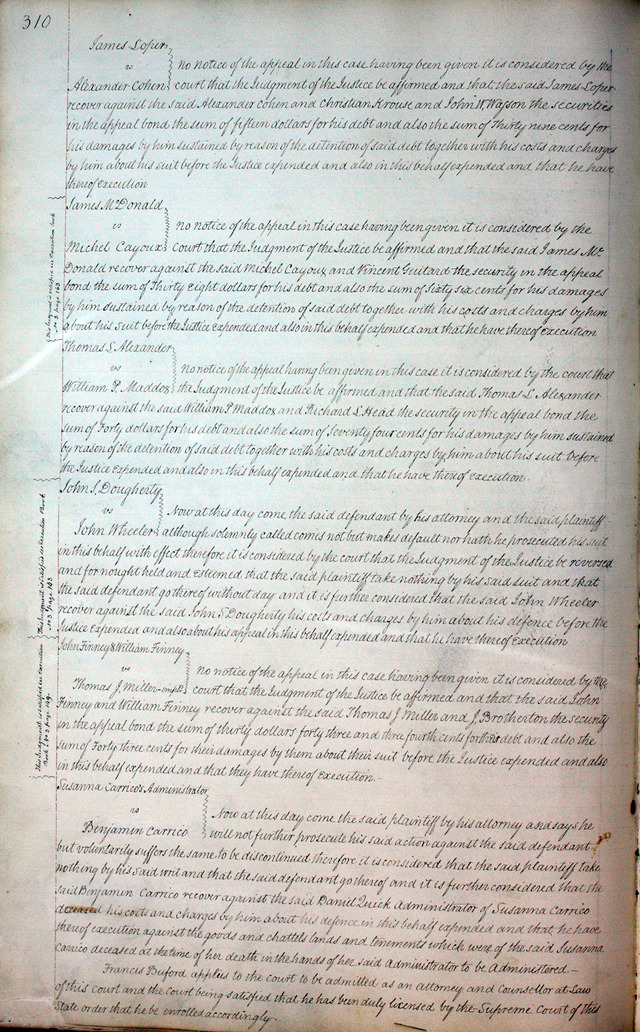 310
James Loper
vs
Alexander Cohen
No notice of the appeal in this case having been given it is considered by the
court that the Judgment of the Justice be affirmed and that the said James Loper
recover against the said Alexander Cohen and Christian Krouse and John W. Wason the securities
in the appeal bond the sum of fifteen dollars for his debt and also the sum of Thirty nine cents for
his damages by him sustained by reason of the detention of said debt together with his costs and charges
by him about his suit before the Justice expended and also in this behalf expended and that he have
thereof execution
James McDonald
vs
Michel Cayoux
No notice of the appeal in this case having been given it is considered by the
Court that the Judgment of the Justice be affirmed and that the said James Mc
Donald recover against the said Michel Cayoux and Vincent Guitard the security in the appeal
bond the sum of Thirty Eight dollars for his debt and also the sum of Sixty six cents for his damages
by him sustained by reason of the detention of said debt together with his costs and charges by him
about his suit before the Justice expended and also in this behalf expended and that he have thereof execution
This Judgment is satisfied see Execution book
No 3 page 163
Thomas L Alexander
vs
William P. Maddox
No notice of the appeal having been given in this case it is considered by the court that
the Judgment of the Justice be affirmed and that the said Thomas L. Alexander
recover against the said William P Maddox and Richard L Head the security in the appeal bond the
sum of Forty dollars for his debt and also the sum of Seventy four cents for his damages by him sustained
by reason of the detention of said debt together with his costs and charges by him about his suit before
the Justice Expended and also in this behalf expended and that he have thereof execution.
John S. Dougherty
vs
John Wheeler
Now at this day come the said defendant by his attorney and the said plaintiff
although solemnly called comes not but makes default nor hath he prosecuted his suit
in this behalf with effect therefore it is considered by the court that the Judgment of the Justice be reversed
and for nought held and esteemed that the said plaintiff take nothing by his said suit and that
the said defendant go thereof without day and it is further considered that the said John Wheeler
recover against the said John S Dougherty his costs and charges by him about his defence before the
Justice Expended and also about his appeal in this behalf expended and that he have thereof Execution
This Judgment is satisfied see Execution Book
No 3 page 163
John Finney & William Finney
vs
Thomas J. Miller
No notice of the appeal in this case having been given it is considered by the
court that the Judgment of the Justice be affirmed and that the said John
Finney and William Finney recover against the said Thomas J Miller and J. Brotherton the security
in the appeal bond the sum of thirty dollars forty three and three fourth cents for their debt and also the
sum of Forty three cents for their damages by them about their suit before the Justice expended and also
in this behalf expended and that they have thereof Execution.
This Judgment is satisfied see Execution
Book No 3 page 169.
Susanna Carrico's Administrator
vs
Benjamin Carrico
Now at this day come the said plaintiff by his attorney and says he
will not further prosecute his said action against the said defendant
but voluntarily suffers the same to be discontinued therefore it is considered that the said plaintiff take
nothing by his said writ and that the said defendant go thereof and it is further considered that the
said Benjamin Carrico recover against the said Daniel Quick Administrator of Susanna Carrico
deceased his costs and charges by him about his defence in this behalf expended and that he have
thereof execution against the goods and chattels lands and tenements which were of the said Susanna
Carrico deceased at the time of her death in the hands of her said Administrator to be Administered.
Francis Buford applies to the court to be admitted as an attorney and Counsellor at Law
of this court and the Court being satisfied that he has been duly licensed by the Supreme Court of this
State order that he be enrolled accordingly